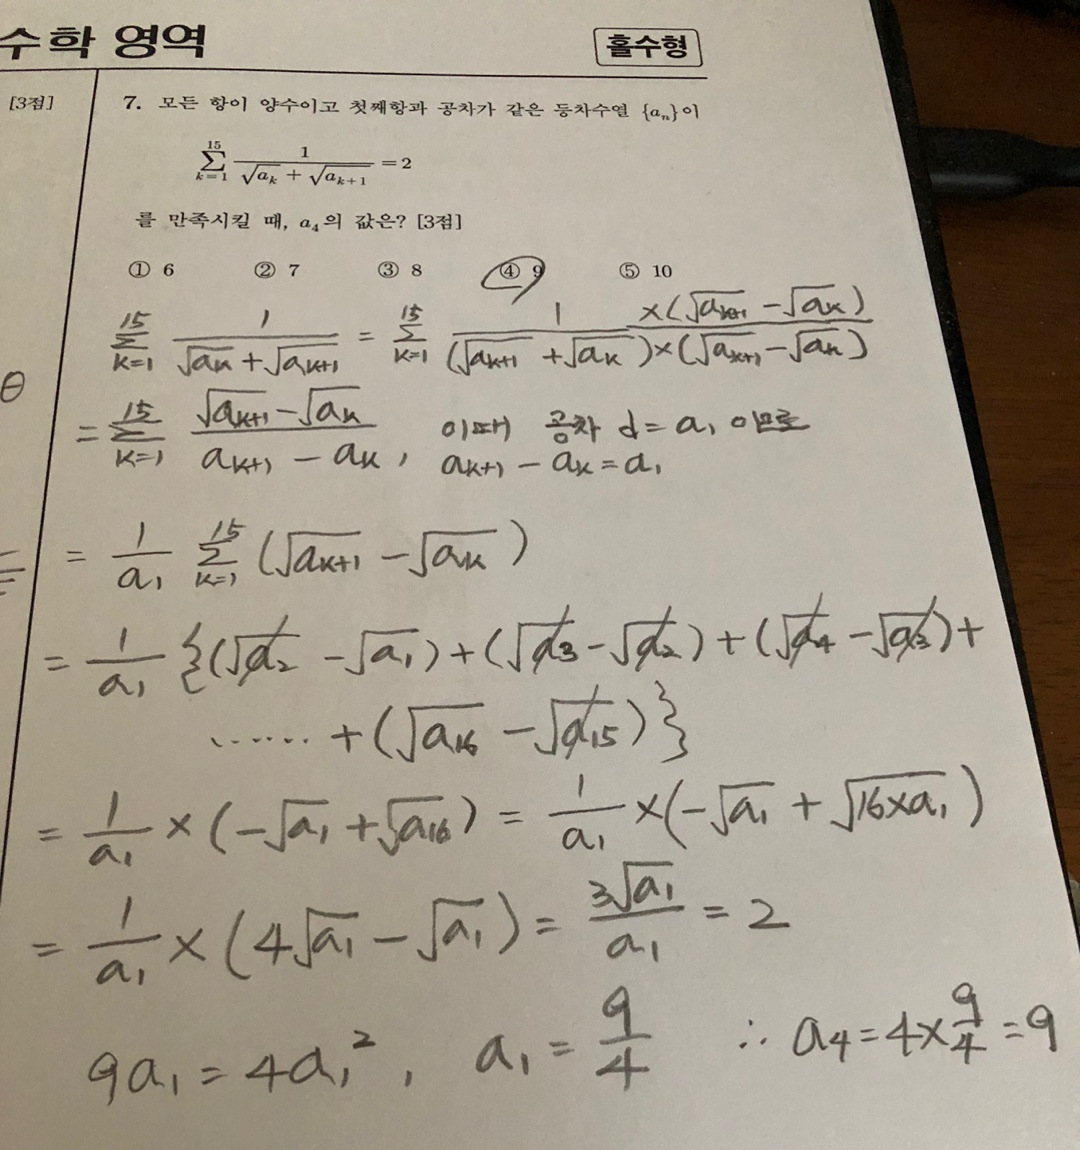 수학 영역
홀수형
[3점]
7. 모든 항이 양수이고 첫째항과 공차가 같은 등차수열 {aₙ}이
∑_{k=1}^{15} 1/(√a_k + √a_{k+1}) = 2
를 만족시킬 때, a₄의 값은? [3점]
① 6 ② 7 ③ 8 ④ 9 ⑤ 10
∑_{k=1}^{15} 1/(√a_k + √a_{k+1}) = ∑_{k=1}^{15} 1×(√a_{k+1} − √a_k)/((√a_{k+1} + √a_k)×(√a_{k+1} − √a_k))
θ
= ∑_{k=1}^{15} (√a_{k+1} − √a_k)/(a_{k+1} − a_k), 이때 공차 d = a₁ 이므로
a_{k+1} − a_k = a₁
= 1/a₁ ∑_{k=1}^{15} (√a_{k+1} − √a_k)
= 1/a₁ {(√a₂ − √a₁) + (√a₃ − √a₂) + (√a₄ − √a₃) +
...... + (√a₁₆ − √a₁₅)}
= 1/a₁ × (−√a₁ + √a₁₆) = 1/a₁ × (−√a₁ + √(16×a₁))
= 1/a₁ × (4√a₁ − √a₁) = 3√a₁/a₁ = 2
9a₁ = 4a₁², a₁ = 9/4 ∴ a₄ = 4×9/4 = 9